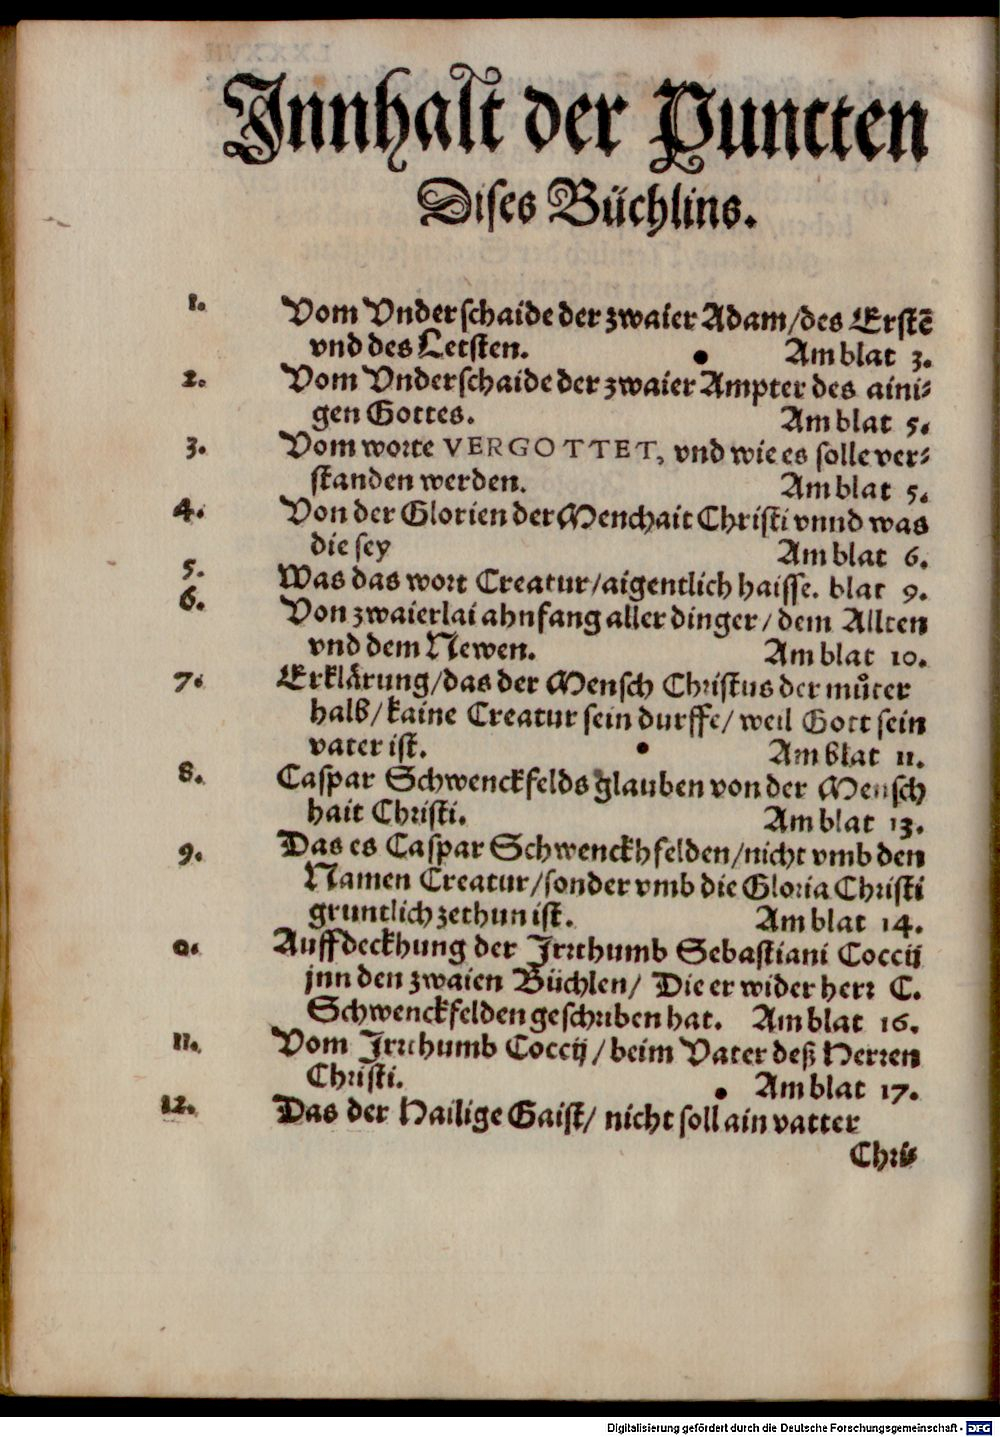 Innhalt der Puncten
Dises Büchlins.
1. Vom Vnderschaide der zwaier Adam/des Erstē
vnd des Letsten. Am blat 3.
2. Vom Vnderschaide der zwaier Ampter des aini-
gen Gottes. Am blat 5.
3. Vom worte VERGOTTET, vnd wie es solle ver-
standen werden. Am blat 5.
4. Von der Glorien der Menchait Christi vnnd was
die sey Am blat 6.
5. Was das wort Creatur/aigentlich haisse. blat 9.
6. Von zwaierlai ahnfang aller dinger/dem Allten
vnd dem Newen. Am blat 10.
7. Erklärung/das der Mensch Christus der můter
halb/kaine Creatur sein durffe/weil Gott sein
vater ist. Am blat 11.
8. Caspar Schwenckfelds glauben von der Mensch
hait Christi. Am blat 13.
9. Das es Caspar Schwenckhfelden/nicht vmb den
Namen Creatur/sonder vmb die Gloria Christi
gruntlich zethun ist. Am blat 14.
0. Auffdeckhung der Irrthumb Sebastiani Coccij
jnn den zwaien Büchlen/ Die er wider herr C.
Schwenckfelden geschriben hat. Am blat 16.
11. Vom Irrthumb Coccij/beim Vater deß Herren
Christi. Am blat 17.
12. Das der Hailige Gaist/ nicht soll ain vatter
Chri-
Digitalisierung gefördert durch die Deutsche Forschungsgemeinschaft - DFG